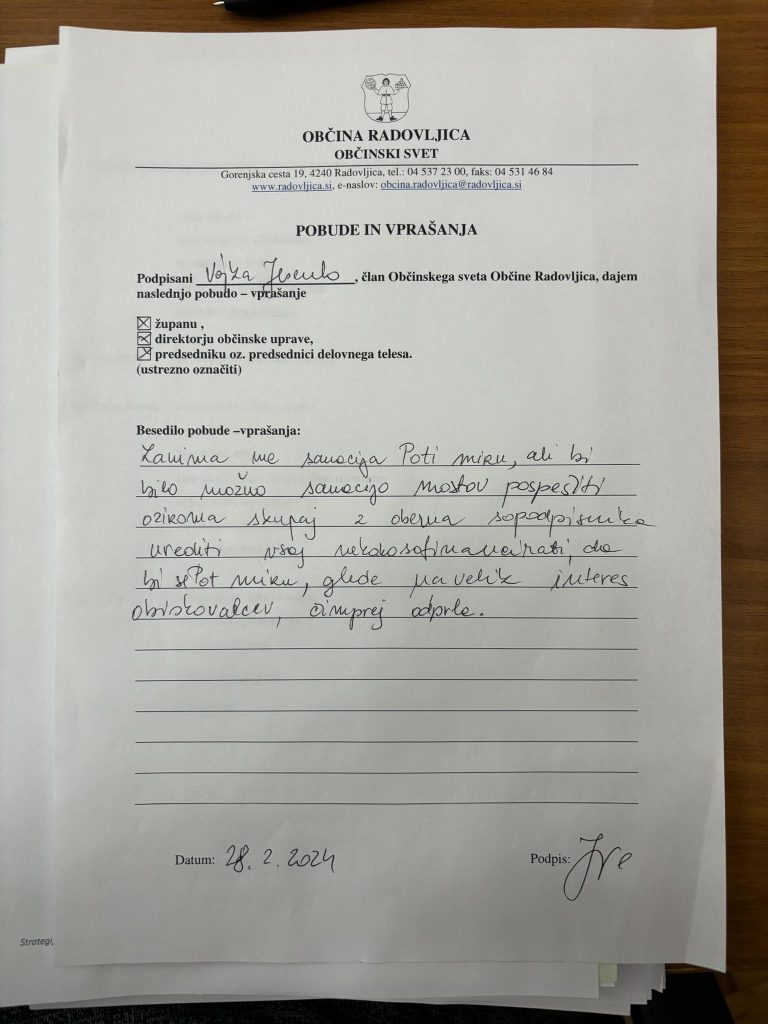 OBČINA RADOVLJICA
OBČINSKI SVET
Gorenjska cesta 19, 4240 Radovljica, tel.: 04 537 23 00, faks: 04 531 46 84
www.radovljica.si, e-naslov: obcina.radovljica@radovljica.si
POBUDE IN VPRAŠANJA
Podpisani Vojka Jesenko, član Občinskega sveta Občine Radovljica, dajem
naslednjo pobudo – vprašanje
županu ,
direktorju občinske uprave,
predsedniku oz. predsednici delovnega telesa.
(ustrezno označiti)
Besedilo pobude –vprašanja:
Zanima me sanacija Poti miru, ali bi
bilo možno sanacijo mostov pospešiti
oziroma skupaj z obema sopodpisnika
urediti vsaj nekoko sofinancirati, da
bi se Pot miru, glede na velik interes
obiskovalcev, čimprej odprla.
Datum: 28. 2. 2024
Podpis:
Strategi,